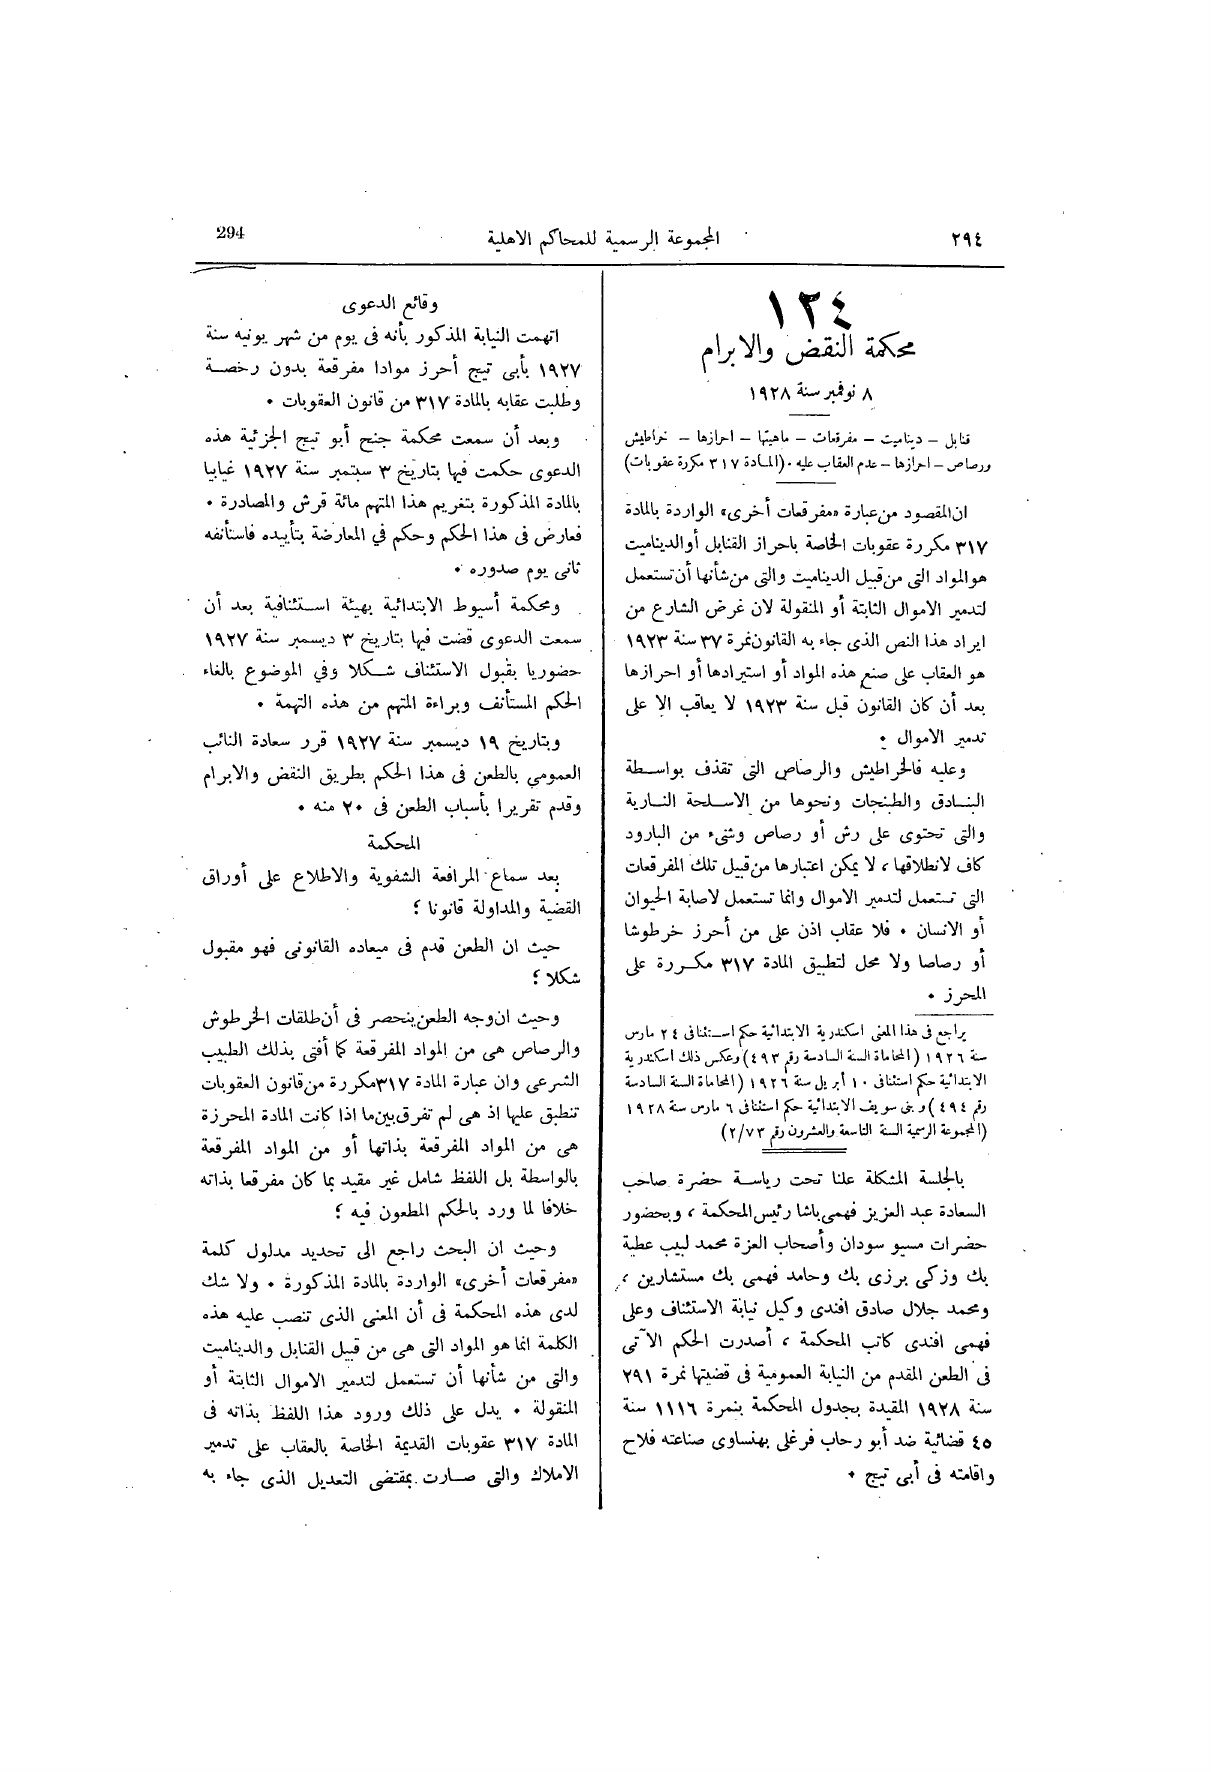 ٢٩٤
المجموعة الرسمية للمحاكم الاهلية
294
١٣٤
محكمة النقض والابرام
٨ نوفمبر سنة ١٩٢٨
قنابل – ديناميت – مفرقعات – ماهيتها – احرازها – خراطيش
ورصاص – احرازها – عدم العقاب عليه ٠ (المادة ٣١٧ مكررة عقوبات)
ان المقصود من عبارة «مفرقعات أخرى» الواردة بالمادة
٣١٧ مكررة عقوبات الخاصة باحراز القنابل أو الديناميت
هو المواد التى من قبيل الديناميت والتى من شأنها أن تستعمل
لتدمير الاموال الثابتة أو المنقولة لان غرض الشارع من
ايراد هذا النص الذى جاء به القانون نمرة ٣٧ سنة ١٩٢٣
هو العقاب على صنع هذه المواد أو استيرادها أو احرازها
بعد أن كان القانون قبل سنة ١٩٢٣ لا يعاقب الا على
تدمير الاموال ٠
وعليه فالخراطيش والرصاص التى تقذف بواسطة
البنادق والطبنجات ونحوها من الاسلحة النارية
والتى تحتوى على رش أو رصاص وشىء من البارود
كاف لانطلاقها ، لا يمكن اعتبارها من قبيل تلك المفرقعات
التى تستعمل لتدمير الاموال وانما تستعمل لاصابة الحيوان
أو الانسان ٠ فلا عقاب اذن على من أحرز خرطوشا
أو رصاصا ولا محل لتطبيق المادة ٣١٧ مكررة على
المحرز ٠
يراجع فى هذا المعنى اسكندرية الابتدائية حكم استئنافى ٢٤ مارس
سنة ١٩٢٦ (المحاماة السنة السادسة رقم ٤٩٣) وعكس ذلك اسكندرية
الابتدائية حكم استئنافى ١٠ أبريل سنة ١٩٢٦ (المحاماة السنة السادسة
رقم ٤٩٤) وبنى سويف الابتدائية حكم استئنافى ٦ مارس سنة ١٩٢٨
(المجموعة الرسمية السنة التاسعة والعشرون رقم ٢/٧٣)
بالجلسة المشكلة علنا تحت رياسة حضرة صاحب
السعادة عبد العزيز فهمى باشا رئيس المحكمة ، وبحضور
حضرات مسيو سودان وأصحاب العزة محمد لبيب عطية
بك وزكى برزى بك وحامد فهمى بك مستشارين ،
ومحمد جلال صادق افندى وكيل نيابة الاستئناف وعلى
فهمى افندى كاتب المحكمة ، أصدرت الحكم الآتى
فى الطعن المقدم من النيابة العمومية فى قضيتها نمرة ٢٩١
سنة ١٩٢٨ المقيدة بجدول المحكمة بنمرة ١١١٦ سنة
٤٥ قضائية ضد أبو رحاب فرغلى بهنساوى صناعته فلاح
واقامته فى أبى تيج ٠
وقائع الدعوى
اتهمت النيابة المذكور بأنه فى يوم من شهر يونيه سنة
١٩٢٧ بأبى تيج أحرز موادا مفرقعة بدون رخصة
وطلبت عقابه بالمادة ٣١٧ من قانون العقوبات ٠
وبعد أن سمعت محكمة جنح أبو تيج الجزئية هذه
الدعوى حكمت فيها بتاريخ ٣ سبتمبر سنة ١٩٢٧ غيابيا
بالمادة المذكورة بتغريم هذا المتهم مائة قرش والمصادرة ٠
فعارض فى هذا الحكم وحكم في المعارضة بتأييده فاستأنفه
ثانى يوم صدوره ٠
ومحكمة أسيوط الابتدائية بهيئة استئنافية بعد أن
سمعت الدعوى قضت فيها بتاريخ ٣ ديسمبر سنة ١٩٢٧
حضوريا بقبول الاستئناف شكلا وفي الموضوع بالغاء
الحكم المستأنف وبراءة المتهم من هذه التهمة ٠
وبتاريخ ١٩ ديسمبر سنة ١٩٢٧ قرر سعادة النائب
العمومي بالطعن فى هذا الحكم بطريق النقض والابرام
وقدم تقريرا بأسباب الطعن فى ٢٠ منه ٠
المحكمة
بعد سماع المرافعة الشفوية والاطلاع على أوراق
القضية والمداولة قانونا ؛
حيث ان الطعن قدم فى ميعاده القانونى فهو مقبول
شكلا ؛
وحيث ان وجه الطعن ينحصر فى أن طلقات الخرطوش
والرصاص هى من المواد المفرقعة كما أفتى بذلك الطبيب
الشرعى وان عبارة المادة ٣١٧ مكررة من قانون العقوبات
تنطبق عليها اذ هى لم تفرق بين ما اذا كانت المادة المحرزة
هى من المواد المفرقعة بذاتها أو من المواد المفرقعة
بالواسطة بل اللفظ شامل غير مقيد بما كان مفرقعا بذاته
خلافا لما ورد بالحكم المطعون فيه ؛
وحيث ان البحث راجع الى تحديد مدلول كلمة
«مفرقعات أخرى» الواردة بالمادة المذكورة ٠ ولا شك
لدى هذه المحكمة فى أن المعنى الذى تنصب عليه هذه
الكلمة انما هو المواد التى هى من قبيل القنابل والديناميت
والتى من شأنها أن تستعمل لتدمير الاموال الثابتة أو
المنقولة ٠ يدل على ذلك ورود هذا اللفظ بذاته فى
المادة ٣١٧ عقوبات القديمة الخاصة بالعقاب على تدمير
الاملاك والتى صارت بمقتضى التعديل الذى جاء به